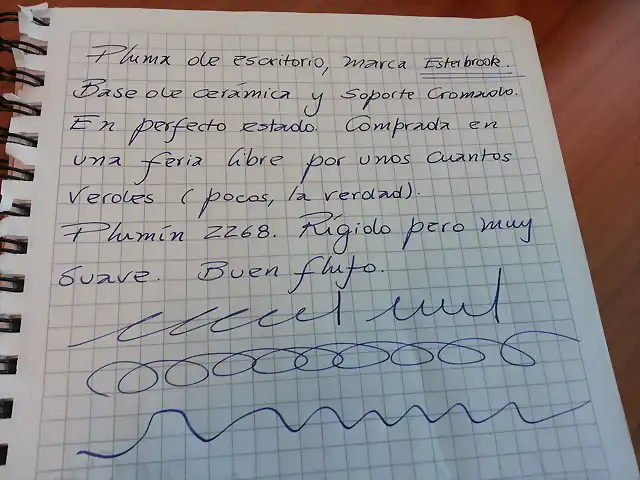 Pluma de escritorio, marca Esterbrook.
Base de cerámica y soporte cromado.
En perfecto estado. Comprada en
una feria libre por unos cuantos
verdes (pocos, la verdad).
Plumín 2268. Rígido pero muy
suave. Buen flujo.